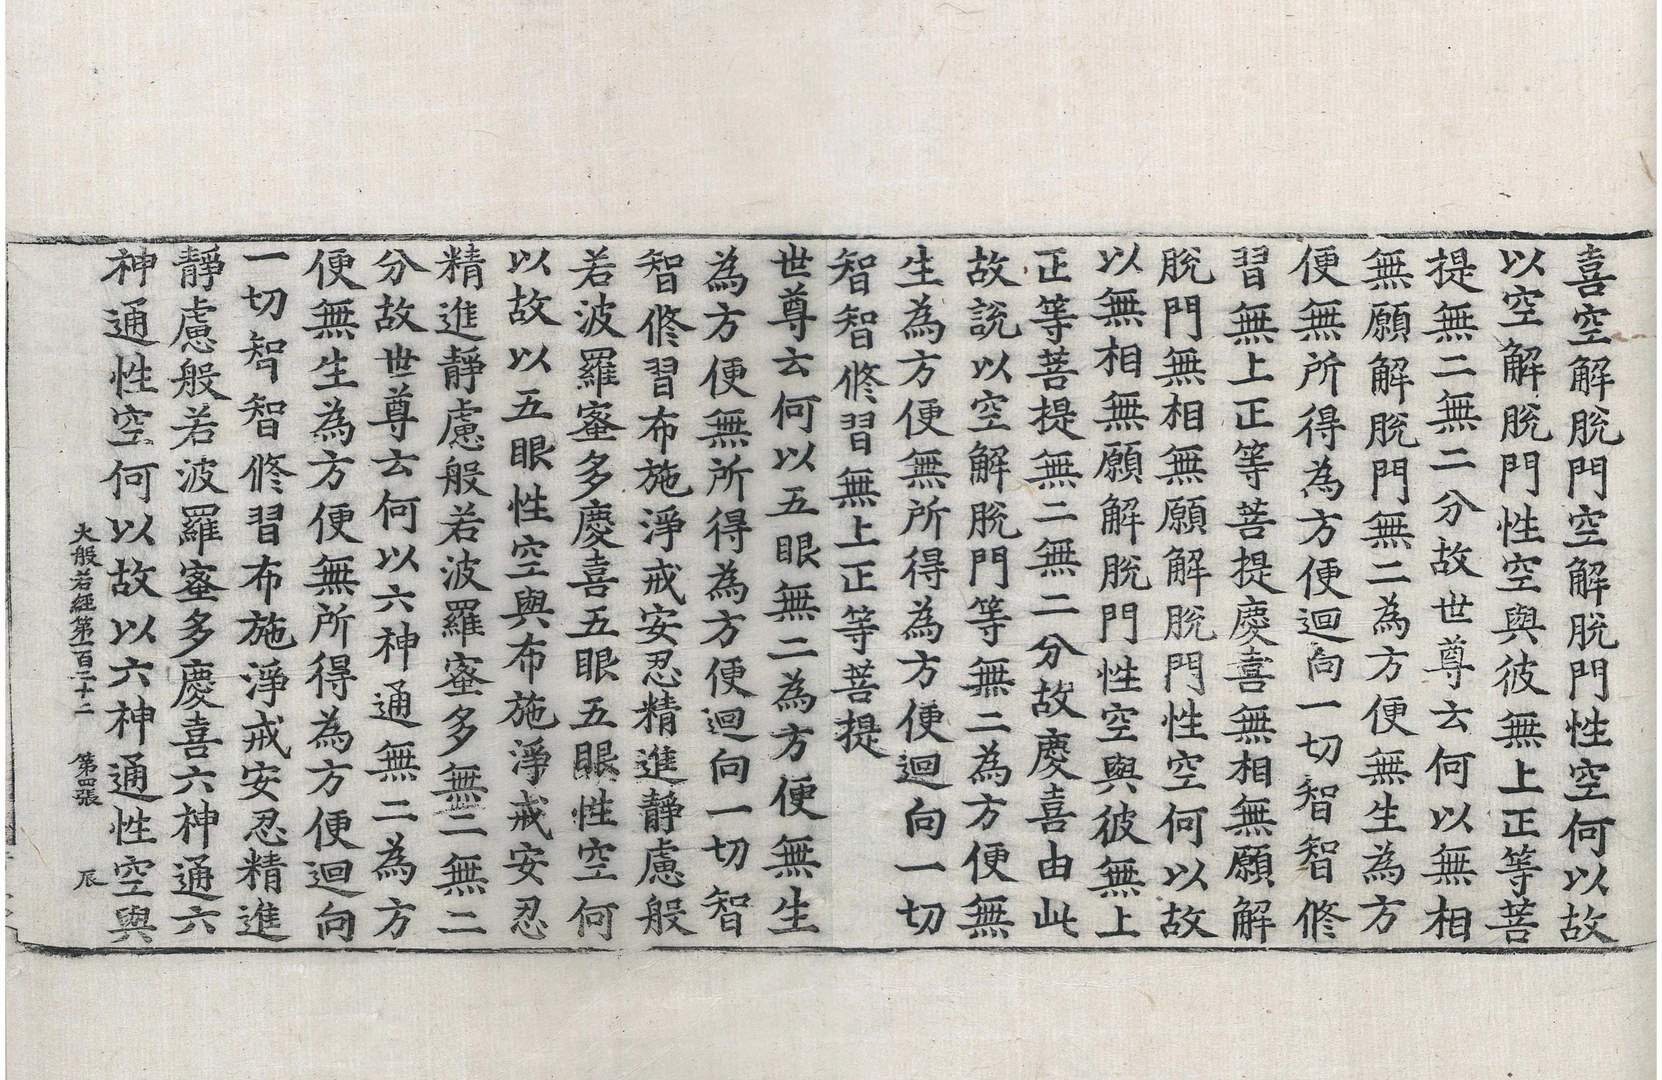 喜空解脫門空解脫門性空何以故
以空解脫門性空與彼無上正等菩
提無二無二分故世尊云何以無相
無願解脫門無二為方便無生為方
便無所得為方便迴向一切智智修
習無上正等菩提慶喜無相無願解
脫門無相無願解脫門性空何以故
以無相無願解脫門性空與彼無上
正等菩提無二無二分故慶喜由此
故說以空解脫門等無二為方便無
生為方便無所得為方便迴向一切
智智修習無上正等菩提
世尊云何以五眼無二為方便無生
為方便無所得為方便迴向一切智
智修習布施淨戒安忍精進靜慮般
若波羅蜜多慶喜五眼五眼性空何
以故以五眼性空與布施淨戒安忍
精進靜慮般若波羅蜜多無二無二
分故世尊云何以六神通無二為方
便無生為方便無所得為方便迴向
一切智智修習布施淨戒安忍精進
靜慮般若波羅蜜多慶喜六神通六
神通性空何以故以六神通性空與
大般若經第一百二十二 第四張 辰